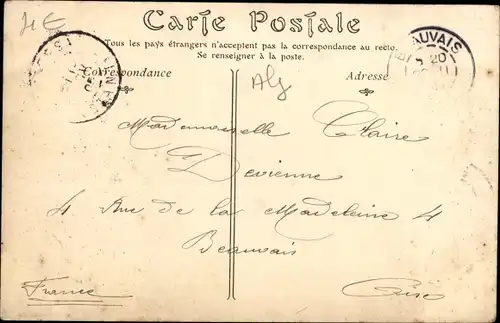 4 E
Carte Postale
Tous les pays étrangers n'acceptent pas la correspondance au recto.
Se renseigner à la poste.
Correspondance
Adresse
Alg
BEAUVAIS
20
Mademoiselle Claire
Devienne
4 Rue de la Madeleine 4
Beauvais
France
Oise